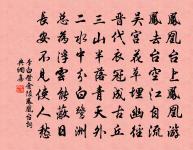 鳳凰台上鳳凰遊
鳳去台空江自流
吳宮花草埋幽徑
晉代衣冠成古丘
三山半落青天外
二水中分白鷺洲
總為浮雲能蔽日
長安不見使人愁
李白登金陵鳳凰台